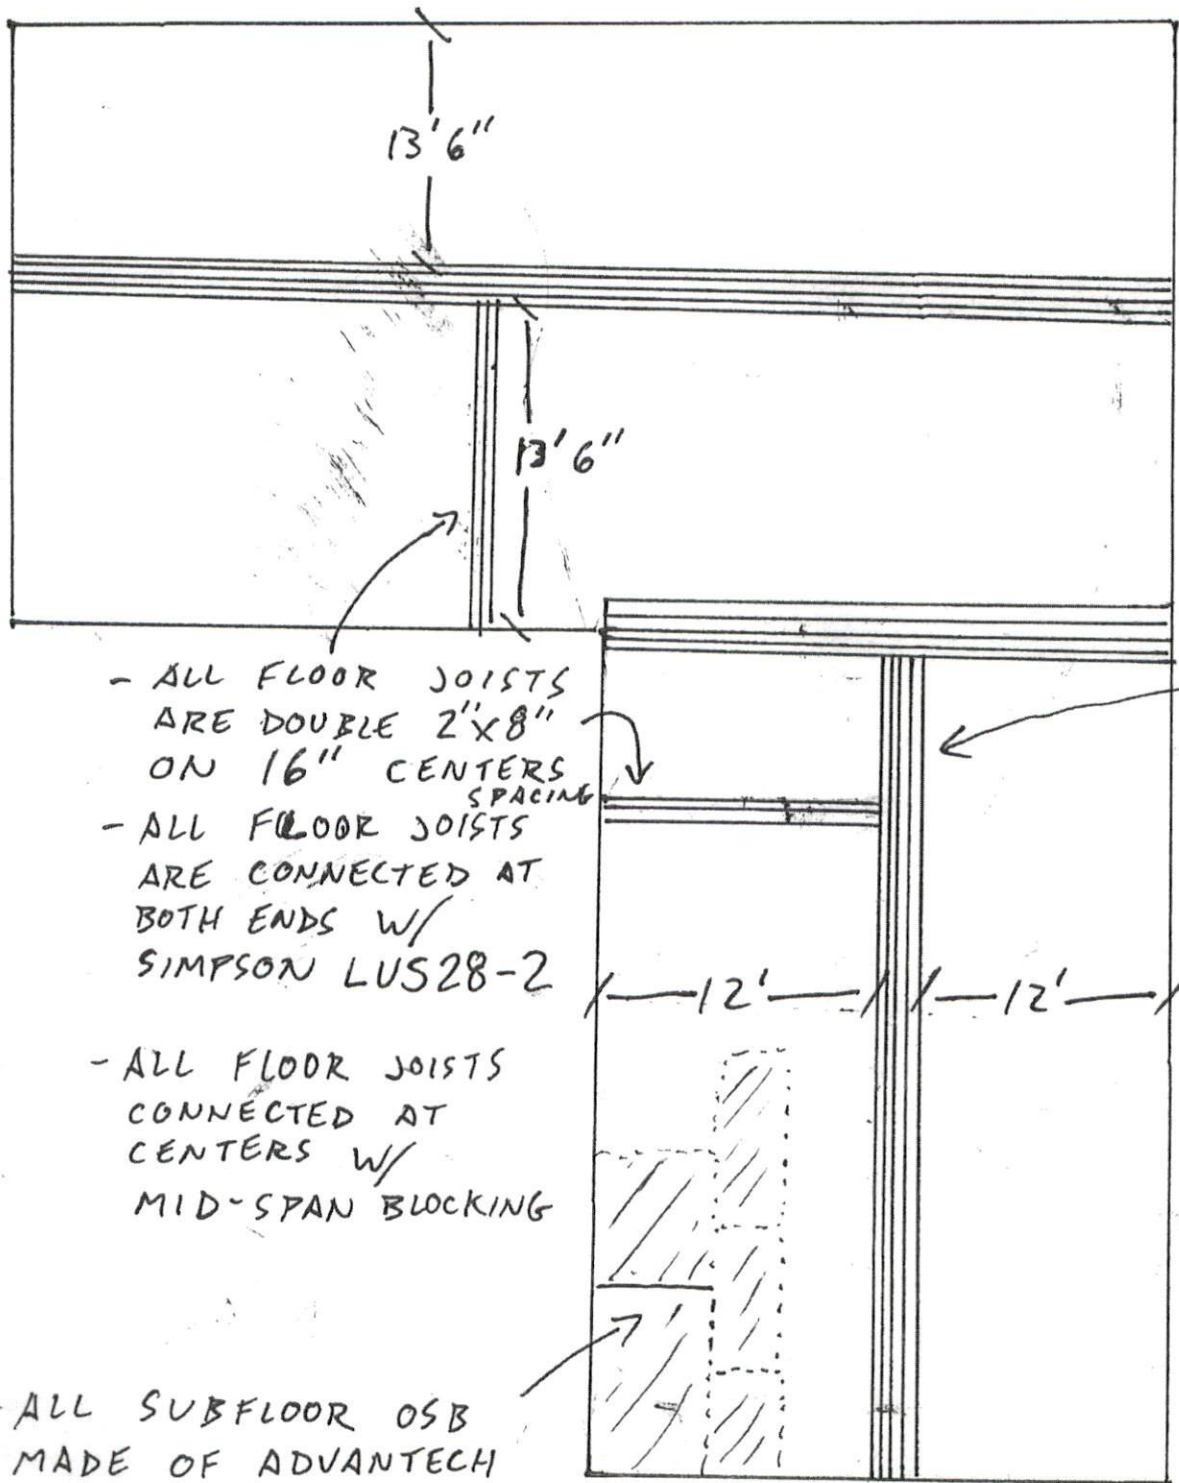 13'6"
13'6"
- ALL FLOOR JOISTS
ARE DOUBLE 2"X8"
ON 16" CENTERS
SPACING
- ALL FLOOR JOISTS
ARE CONNECTED AT
BOTH ENDS W/
SIMPSON LUS28-2
12' 12'
- ALL FLOOR JOISTS
CONNECTED AT
CENTERS W/
MID-SPAN BLOCKING
- ALL SUBFLOOR OSB
MADE OF ADVANTECH